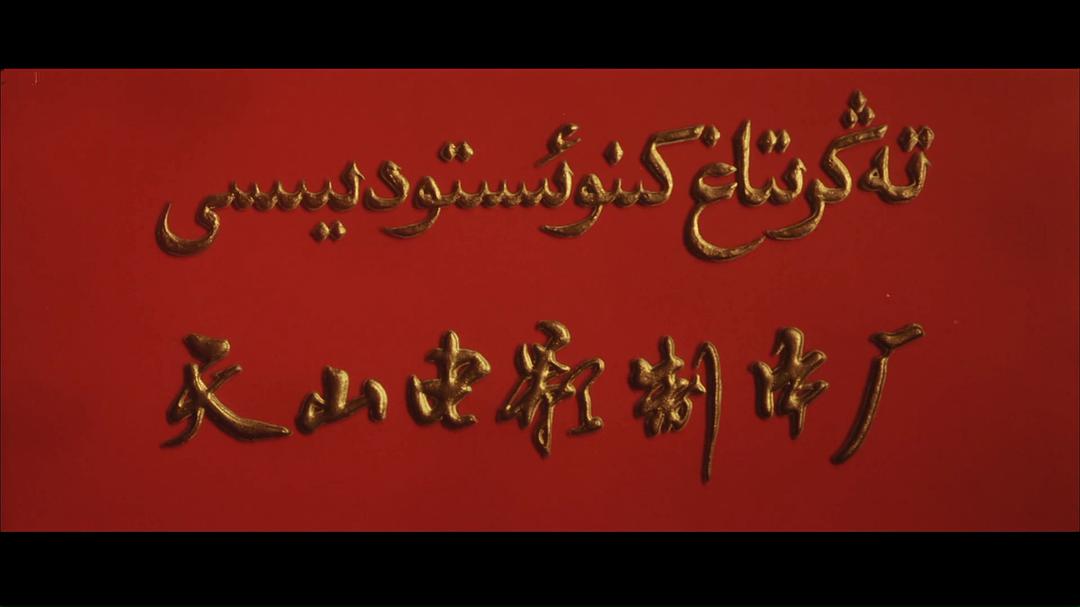 تەڭرىتاغ كىنوئىستودىيىسى
天山电影制片厂